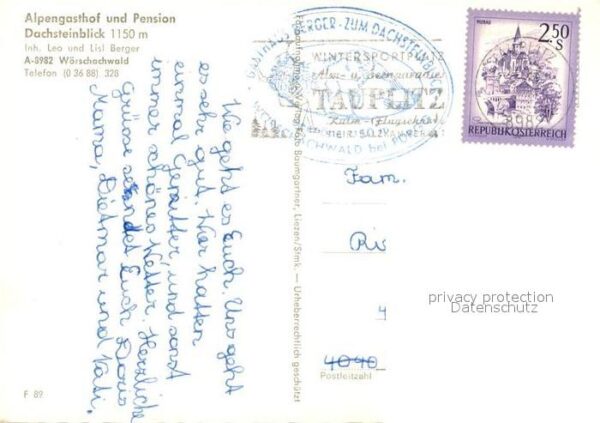 Alpengasthof und Pension
Dachsteinblick 1150 m
Inh. Leo und Lisl Berger
A-8982 Wörschachwald
Telefon (0 36 88) 328
Wie geht es Euch. Uns geht
es sehr gut. Wir hatten
einmal Gewitter und sonst
immer schönes Wetter. Herzliche
Grüsse sendet Euch Doris
Mama, Dietmar und Kati.
F 89
Baumgartner, Liezen/Stmk. — Urheberrechtlich geschützt
GASTHAUS BERGER - ZUM DACHSTEINBLICK
WINTERSPORTPLATZ
Alm- u. Seenparadies
TAUPLITZ
Kulm-Flugschanze
MURAU
2.50
S
REPUBLIK ÖSTERREICH
8982
Fam.
Ri
4
4040
Postleitzahl
privacy protection
Datenschutz